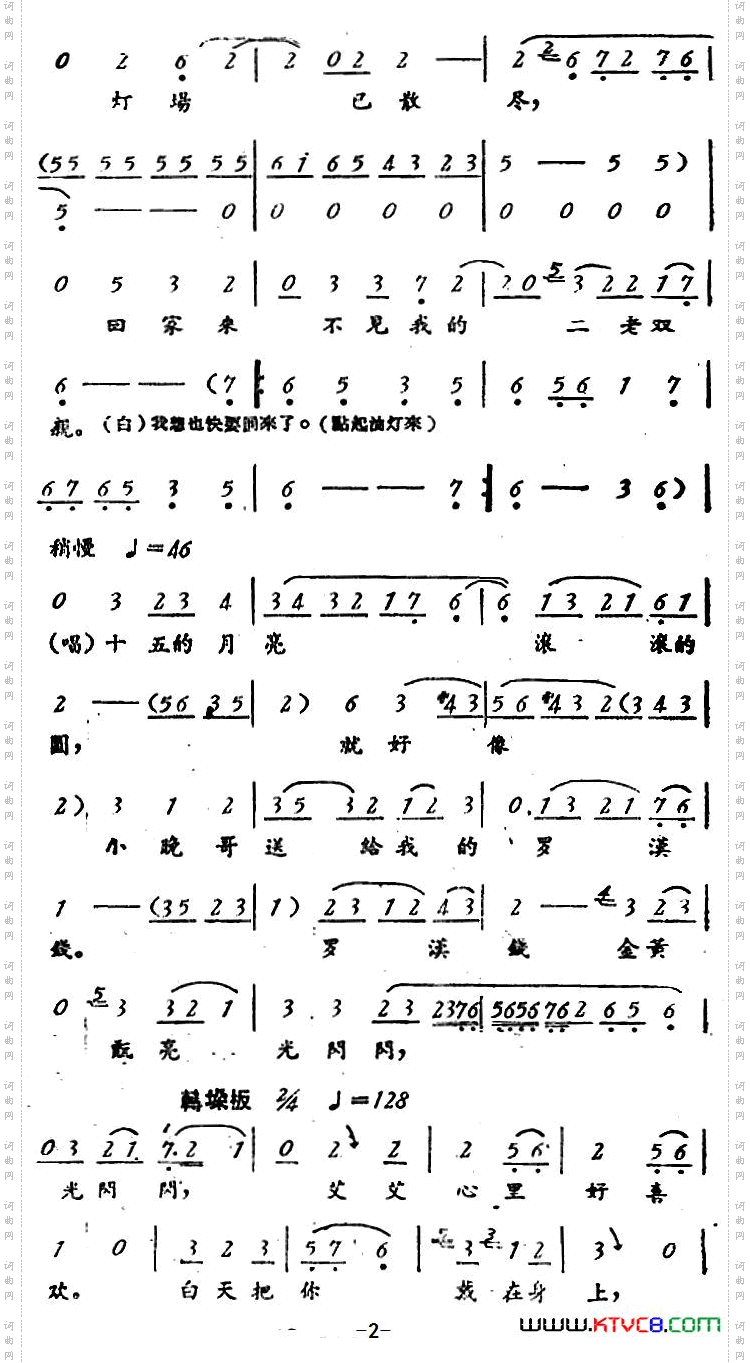 0 2 6 2 | 2 02 2 — | 2 2 6 72 76 |
灯場 已散 尽，
(55 55 55 55 | 61 65 43 23 | 5 — 5 5) |
5 — — 0 | 0 0 0 0 | 0 0 0 0 |
0 5 3 2 | 0 3 3 7 2 | 20 5 3 22 17 |
回家来 不見我的 二老双
6 — — (7 |: 6 5 3 5 | 6 56 1 7 |
親。（白）我想也快要回來了。（點起油灯來）
67 65 3 5 | 6 — — 7 :| 6 — 3 6) |
稍慢 ♩=46
0 3 23 4 | 34 32 17 6 | 6 13 21 61 |
(唱) 十五的月亮 滾 滾的
2 — (56 35 | 2) 6 3 #43 | 56 #43 2 (3 43 |
圓， 就好像
2) 3 1 2 | 35 32 12 3 | 0. 13 21 76 |
小晚哥送 給我的 罗 漢
1 — (35 23 | 1) 23 12 43 | 2 — 4 3 23 |
錢。 罗漢錢 金黄
0 5 3 32 1 | 3 3 23 2376 | 5656 762 65 6 |
亮 光閃閃，
轉垛板 2/4 ♩=128
03 21 | 7.2 1 | 0 2 2 | 2 56 | 2 56 |
光閃閃， 艾艾心里好喜
1 0 | 3 2 3 | 57 6 | 3 2 12 | 3 0 |
欢。 白天把你 戴在身上，
-2-
www.KTVC8.com
词曲网